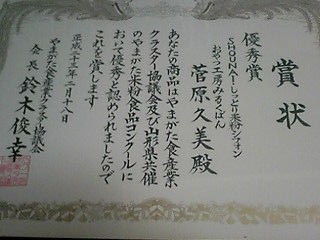 賞状
優秀賞
SHOUNAIしっとり米粉シフォン
おやつこ房みるくぱん
菅原久美殿
あなたの商品はやまがた食産業
クラスター協議会及び山形県共催
のやまがた米粉食品コンクールに
おいて優秀と認められましたので
これを賞します
平成二十三年二月十八日
やまがた食産業クラスター協議会
会長 鈴木俊幸